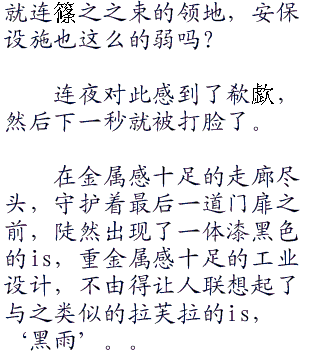 就连篠之之束的领地，安保
设施也这么的弱吗？
连夜对此感到了欷歔，
然后下一秒就被打脸了。
在金属感十足的走廊尽
头，守护着最后一道门扉之
前，陡然出现了一体漆黑色
的is，重金属感十足的工业
设计，不由得让人联想起了
与之类似的拉芙拉的is，
‘黑雨’。。